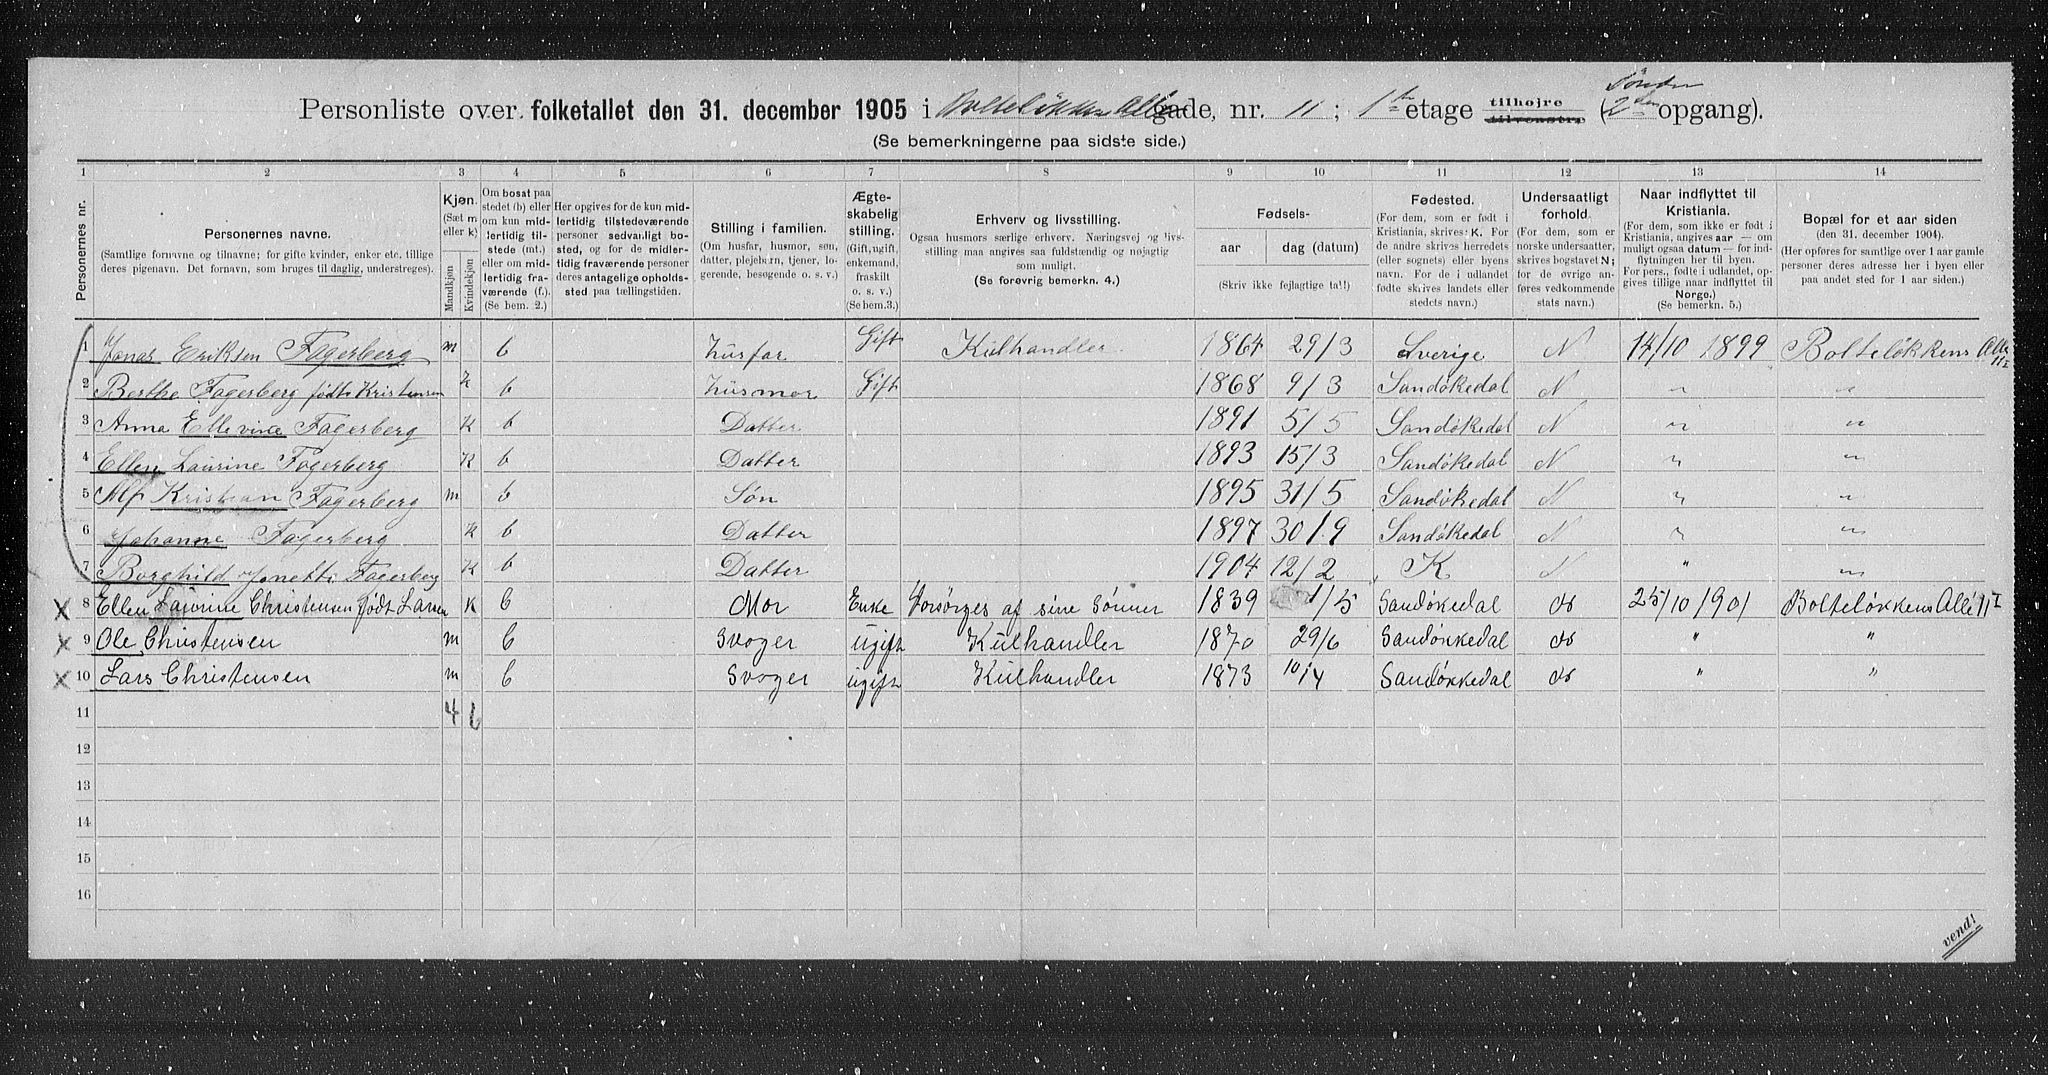 Personliste over folketallet den 31. december 1905 i Bolteløkkens Alle gade, nr. 11; 1ste etage tilhøjre tilvenstre (2den opgang).
(Se bemerkningerne paa sidste side.)
1 2 3 4 5 6 7 8 9 10 11 12 13 14
Personernes nr.
Personernes navne.
(Samtlige fornavne og tilnavne; for gifte kvinder, enker etc. tillige
deres pigenavn. Det fornavn, som bruges til daglig, understreges).
Kjøn.
(Sæt m
eller k)
Mandkjøn
Kvindekjøn
Om bosat paa
stedet (b) eller
om kun mid-
lertidig til-
stede (mt.)
eller om mid-
lertidig fra-
værende (f.).
(Se bem. 2.)
Her opgives for de kun mid-
lertidig tilstedeværende
personer sedvanligt bo-
sted, og for de midler-
tidig fraværende personer
deres antagelige opholds-
sted paa tællingstiden.
Stilling i familien.
(Om husfar, husmor, søn,
datter, plejebarn, tjener, lo-
gerende, besøgende o. s. v.)
Ægte-
skabelig
stilling.
(Gift, ugift,
enkemand,
fraskilt
o. s. v.)
(Se bem. 3.)
Erhverv og livsstilling.
Ogsaa husmors særlige erhverv. Næringsvej og livs-
stilling maa angives saa fuldstændig og nøjagtig
som muligt.
(Se forøvrig bemerkn. 4.)
Fødsels-
aar dag (datum)
(Skriv ikke fejlagtige tal!)
Fødested.
(For dem, som er født i
Kristiania, skrives: K. For
de andre skrives herredets
(eller sognets) eller byens
navn. For de i udlandet
fødte skrives landets eller
stedets navn.)
Undersaatligt
forhold.
(For dem, som er
norske undersaatter,
skrives bogstavet N;
for de øvrige an-
føres vedkommende
stats navn.)
Naar indflyttet til
Kristiania.
(For dem, som ikke er født i
Kristiania, angives aar — om
muligt ogsaa datum — for ind-
flytningen her til byen.
For pers., fødte i udlandet, op-
gives tillige naar indflyttet til
Norge.)
(Se bemerkn. 5.)
Bopæl for et aar siden
(den 31. december 1904).
(Her opføres for samtlige over 1 aar gamle
personer deres adresse her i byen eller
paa andet sted for 1 aar siden.)
1 Jonas Eriksen Fagerberg m b husfar Gift Kulhandler 1864 29/3 Sverige N 14/10 1899 Bolteløkkens Alle 11 I
2 Berthe Fagerberg født Kristensen k b husmor Gift 1868 9/3 Sandøkedal N " "
3 Anna Ellevine Fagerberg K b Datter 1891 5/5 Sandøkedal N " "
4 Ellen Laurine Fagerberg K b Datter 1893 15/3 Sandøkedal N " "
5 Alf Kristian Fagerberg m b Søn 1895 31/5 Sandøkedal N " "
6 Johanne Fagerberg K b Datter 1897 30/9 Sandøkedal N " "
7 Borghild Janette Fagerberg K b Datter 1904 12/2 K N " "
x 8 Ellen Laurine Christensen født Larsen K b Mor Enke Forsørges af sine Sønner 1839 1/5 Sandøkedal N 25/10 1901 Bolteløkkens Alle 11 I
x 9 Ole Christensen m b Svoger ugift Kulhandler 1870 29/6 Sandøkkedal N " "
x 10 Lars Christensen m b Svoger ugift Kulhandler 1873 10/4 Sandøkkedal N " "
11 4 6
12
13
14
15
16
vend!